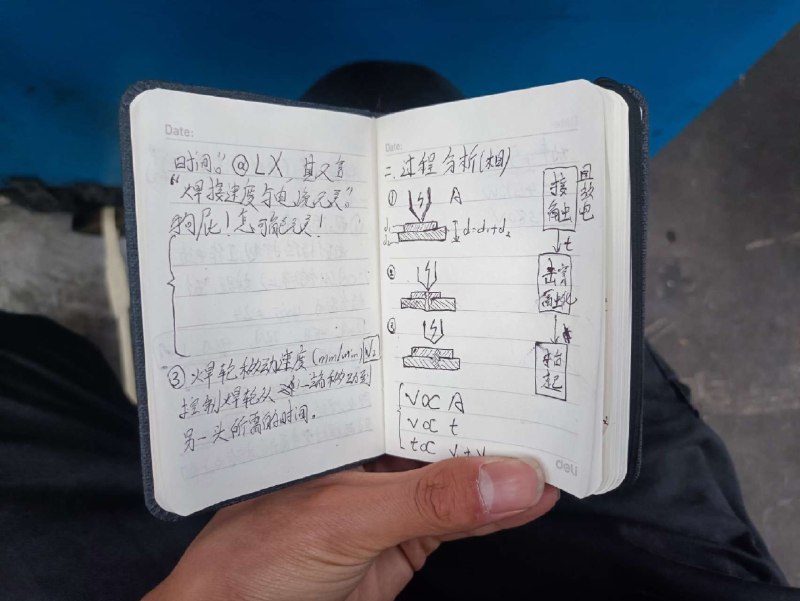 Date:
时间。@LX，其又言
“焊接速度与电流无关。”
狗屁！怎可能无关！
③焊轮移动速度(mm/min) V₂
控制焊轮从一端移动到
另一头所需的时间。
Date:
二.过程分析(相)
① A
d₁
d₂
d=d₁+d₂
②
③
接触
回放电
t
击穿
融化
抬起
V∝A
V∝t
t∝
deli